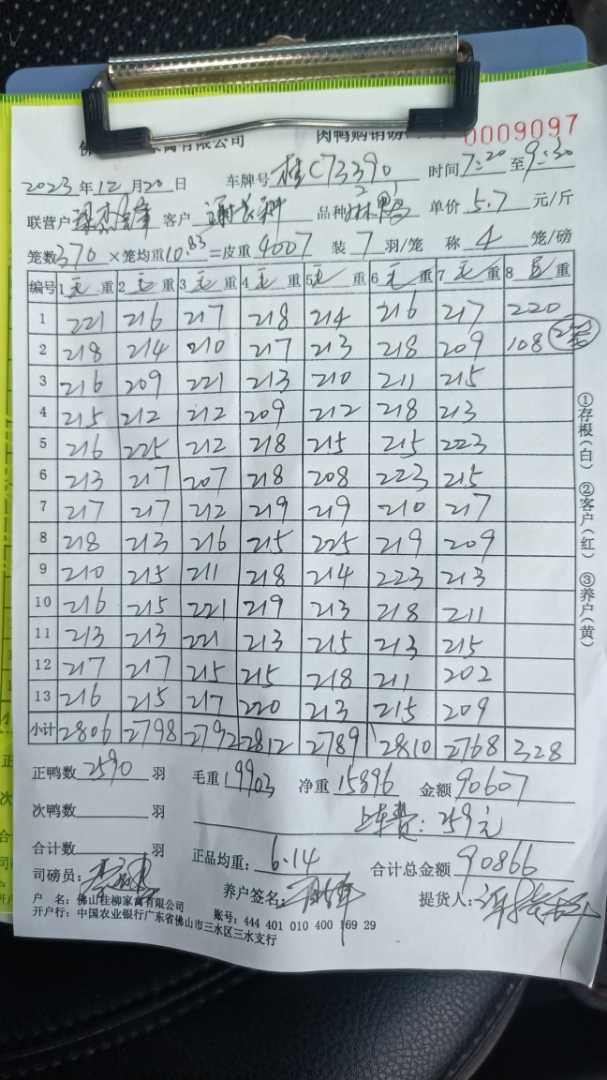 家禽有限公司 肉鸭购销磅
0009097
2023年12月20日 车牌号 桂C73390 时间7:20至9:30
联营户 客户 品种 单价 5.7 元/斤
笼数370×笼均重10.83=皮重4007 装7羽/笼 称4笼/磅
编号 1毛重 2毛重 3毛重 4毛重 5毛重 6毛重 7毛重 8毛重
1 221 216 217 218 214 216 217 220
2 218 214 210 217 213 218 209 108
3 216 209 221 213 210 211 215
4 215 212 212 209 212 218 213
5 216 225 212 218 215 215 223
6 213 217 207 218 208 223 215
7 217 217 212 219 219 210 217
8 218 213 216 215 225 219 209
9 210 215 211 218 214 223 213
10 216 215 221 219 213 218 211
11 213 213 221 213 215 213 215
12 217 217 215 215 218 211 202
13 216 215 217 220 213 215 209
小计 2806 2798 2792 2812 2789 2810 2768 328
正鸭数 2590 羽 毛重 19903 净重 15896 金额 90607
次鸭数 羽 上车费:259元
合计数 羽 正品均重: 6.14 合计总金额 90866
司磅员: 养户签名: 提货人:
户 名:佛山桂柳家禽有限公司
开户行:中国农业银行广东省佛山市三水区三水支行 账号:444 401 010 400 169 29
①存根(白) ②客户(红) ③养户(黄)